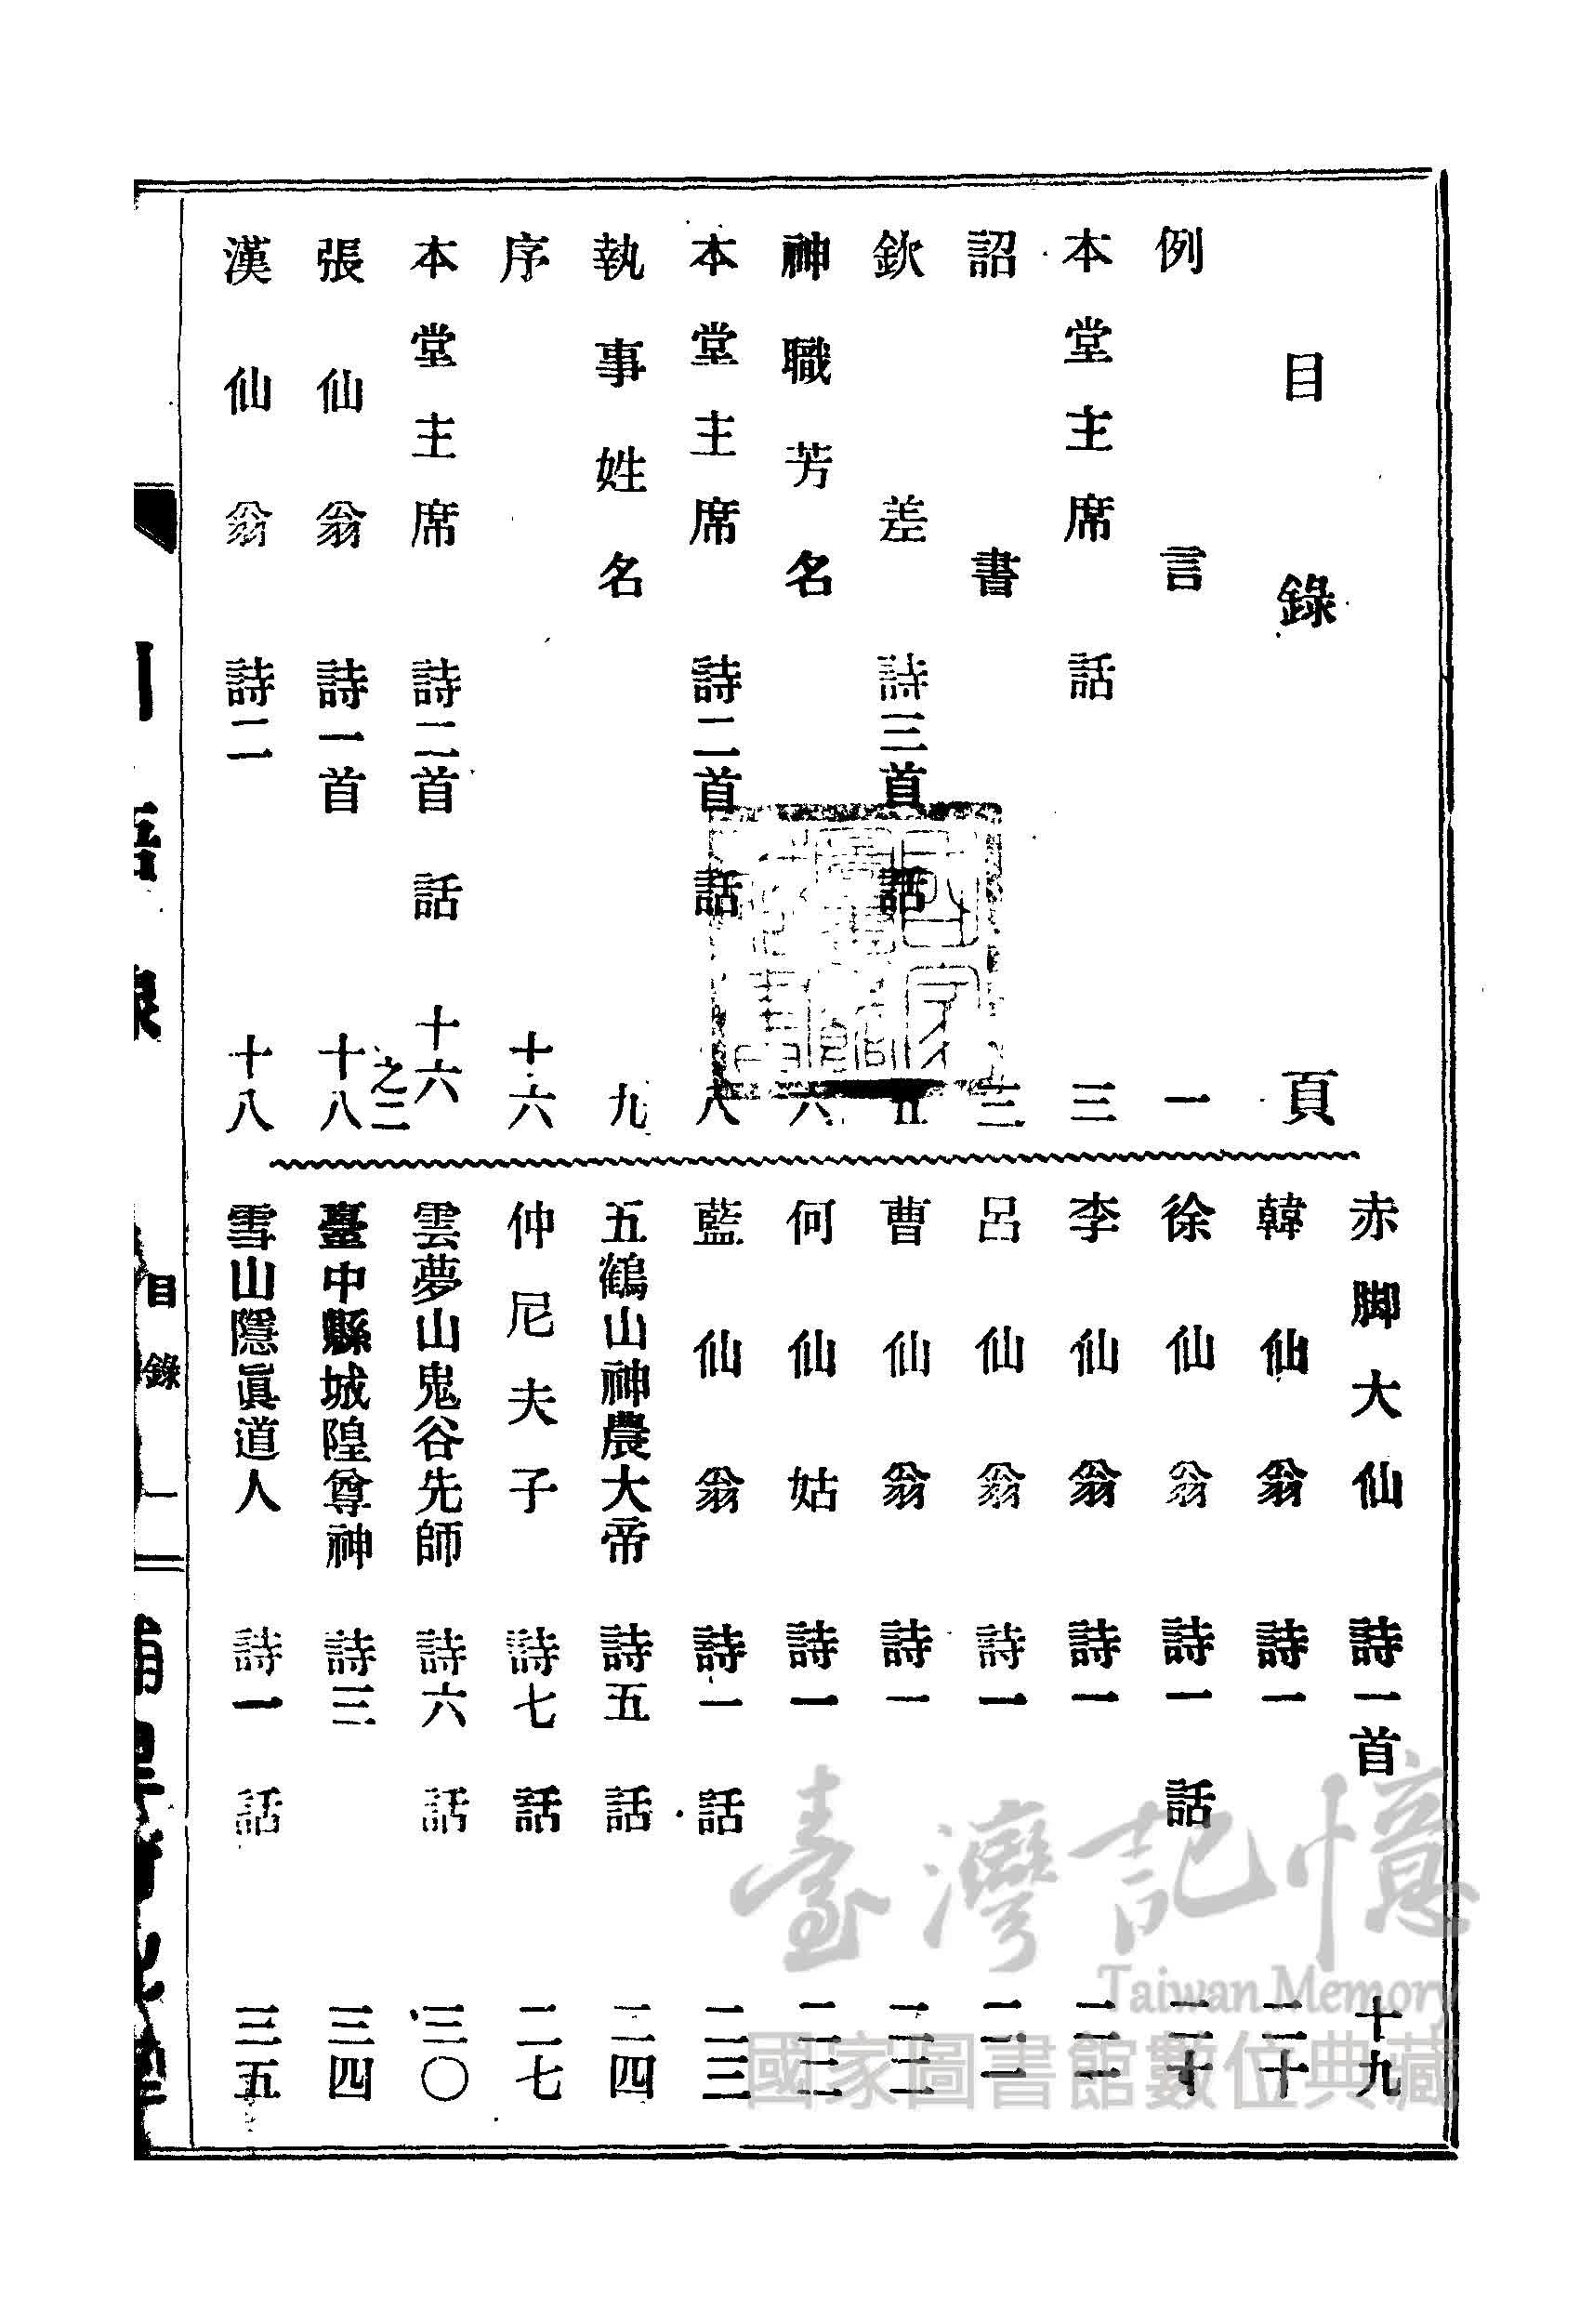 目錄 頁
例言 一
本堂主席 話 三
詔書 三
欽差 詩三首 話 五
神職芳名 六
本堂主席 詩二首 話 八
執事姓名 九
序 十六
本堂主席 詩二首 話 十六之二
張仙翁 詩一首 十八
漢仙翁 詩二 十八
赤脚大仙 詩一首 十九
韓仙翁 詩一 二十
徐仙翁 詩一 話 二十
李仙翁 詩一 二一
呂仙翁 詩一 二一
曹仙翁 詩一 二二
何仙姑 詩一 二二
藍仙翁 詩一 話 二三
五鶴山神農大帝 詩五 話 二四
仲尼夫子 詩七 話 二七
雲夢山鬼谷先師 詩六 話 三〇
臺中縣城隍尊神 詩三 三四
雪山隱眞道人 詩一 話 三五
目錄 一
臺灣記憶
Taiwan Memory
國家圖書館數位典藏